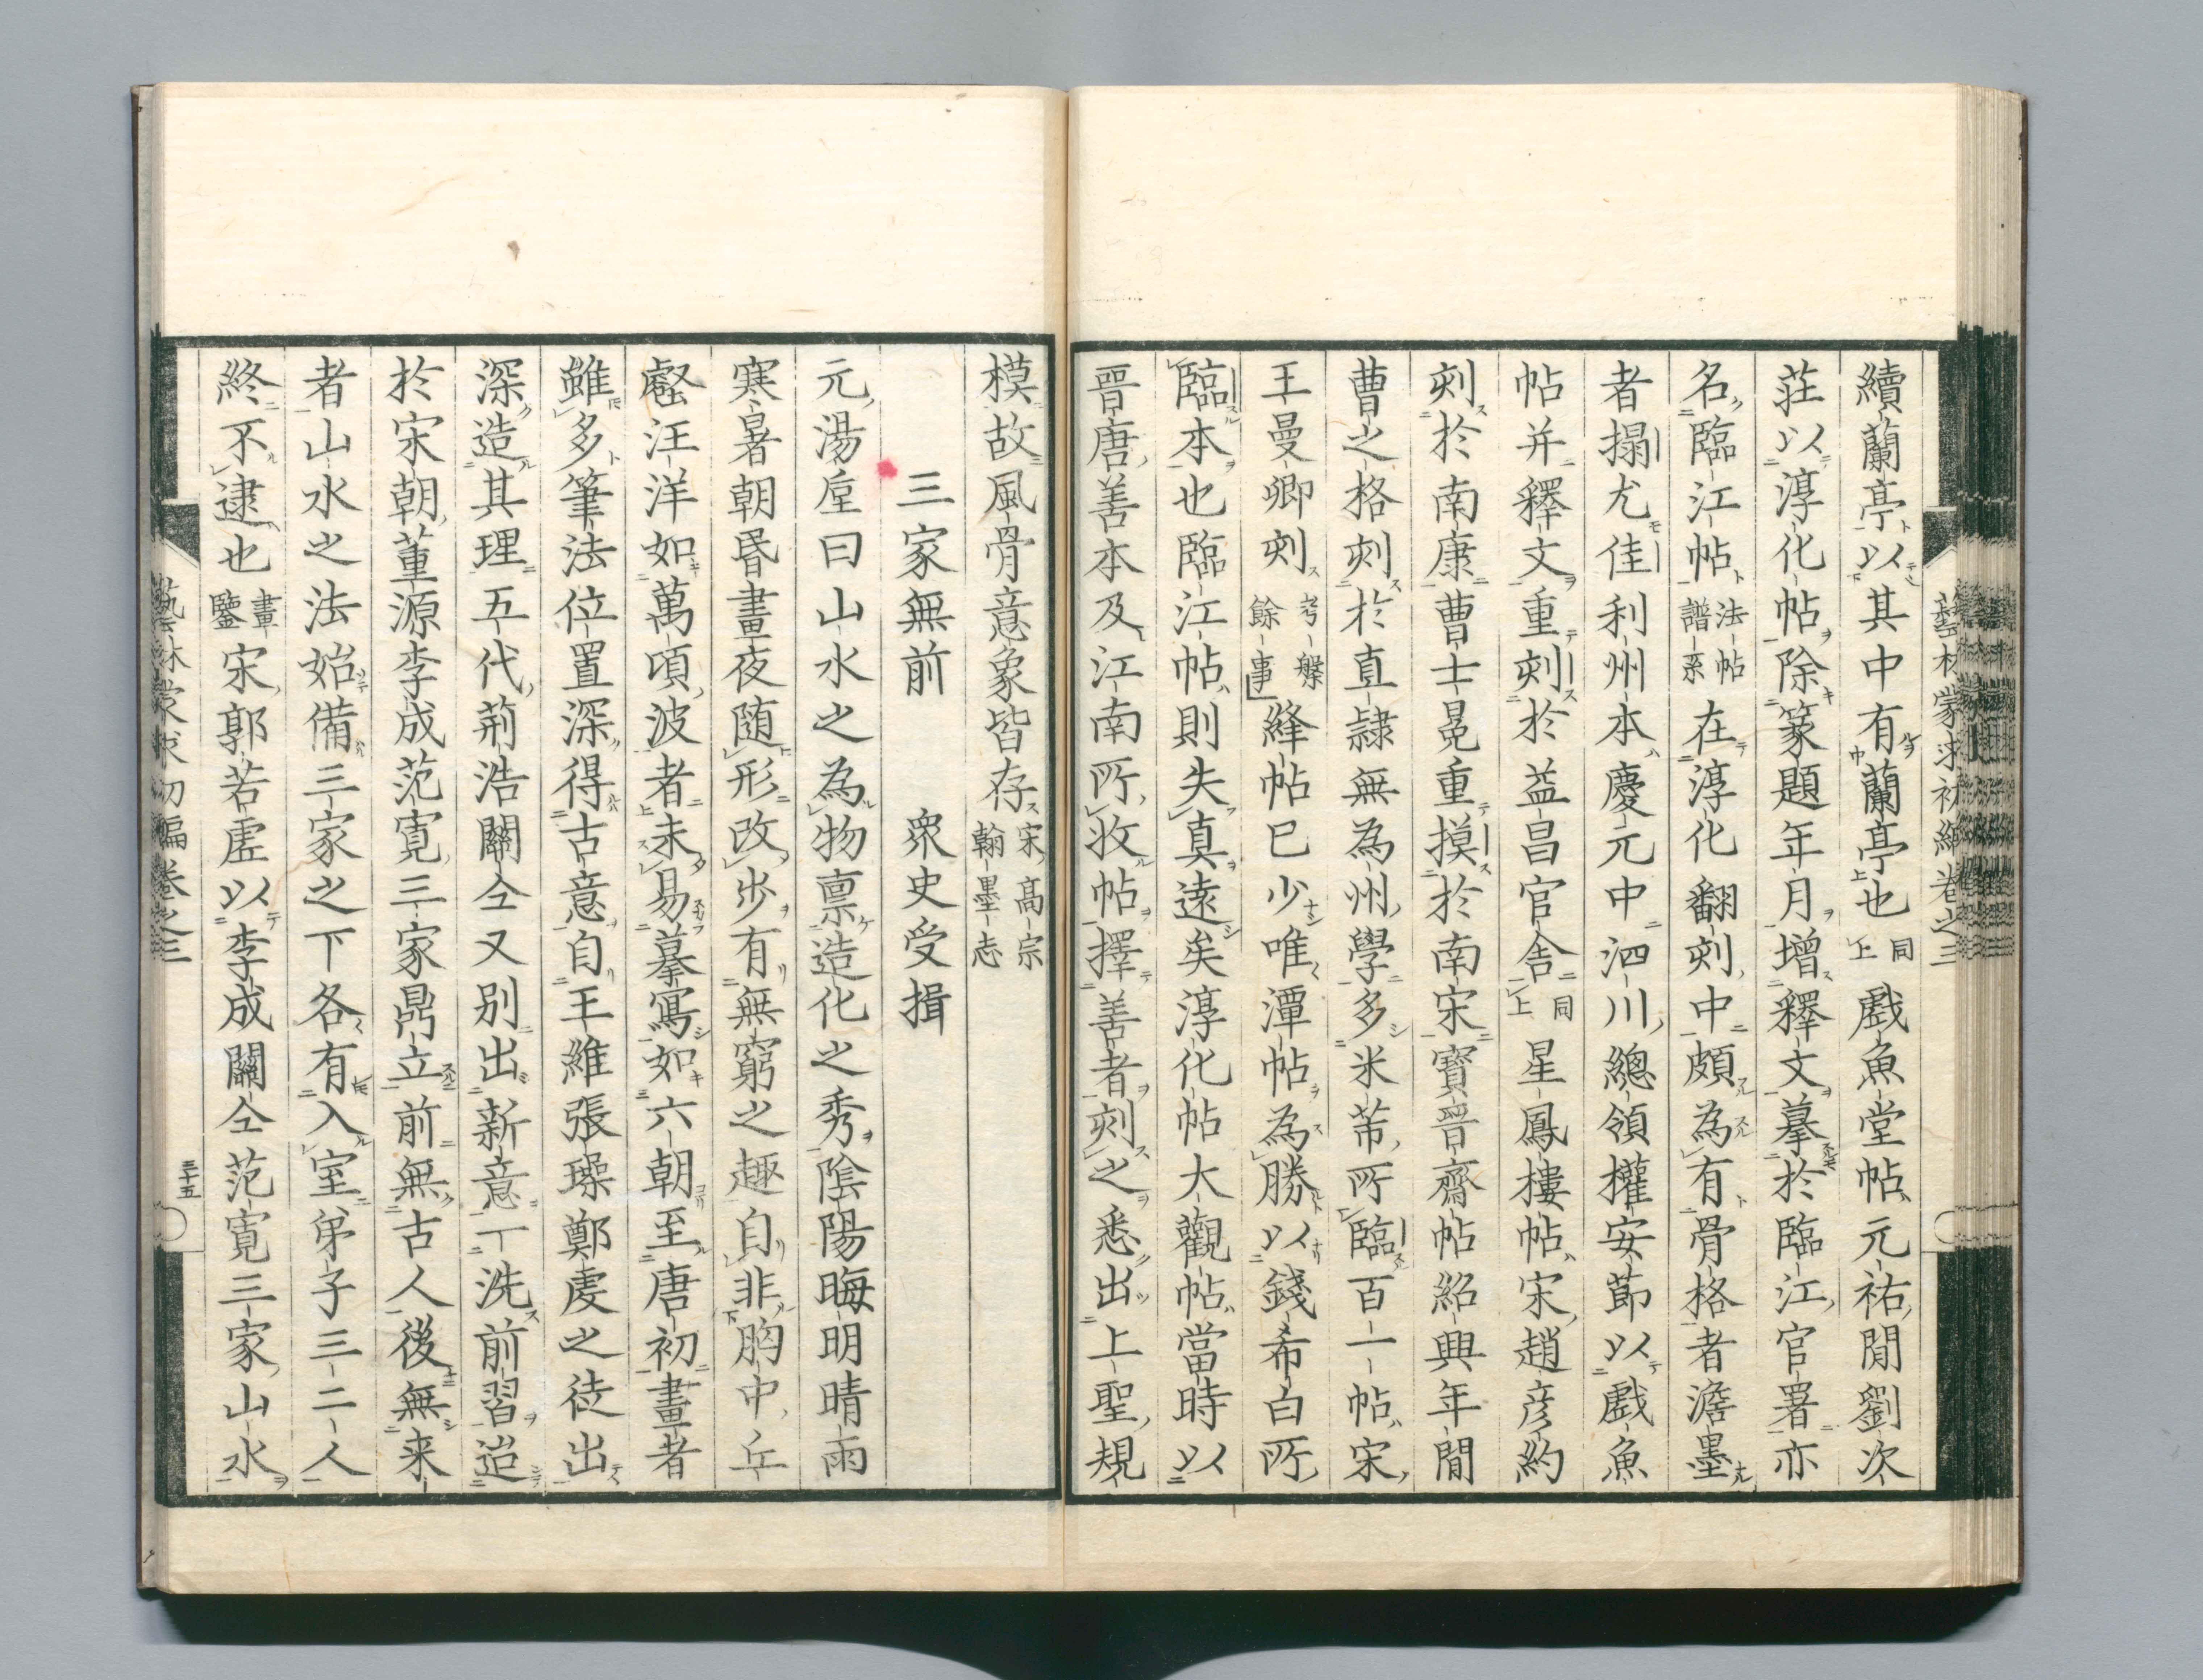 續蘭亭以其中有蘭亭也同上戲魚堂帖元祐間劉次
莊以淳化帖除篆題年月増釋文摹於臨江官署亦
名臨江帖法帖譜系在淳化翻刻中頗為有骨格者澹墨
者搨尤佳利州本慶元中泗川總領權安莭以戲魚
帖并釋文重刻於益昌官舎同上星鳳樓帖宋趙彦約
刻於南康曹士冕重摸於南宋寶晋齋帖紹興年間
曹之格刻於直隷無為州學多米芾所臨百一帖宋
王曼卿刻考槃餘事絳帖已少唯潭帖為勝以錢希白所
臨本也臨江帖則失真遠矣淳化帖大觀帖當時以
晋唐善本及江南所收帖擇善者刻之悉出上聖規
模故風骨意象皆存宋高宗翰墨志
三家無前　衆史受揖
元湯垕曰山水之為物禀造化之秀陰陽晦明晴雨
寒暑朝昬晝夜随形改歩有無窮之趣自非胸中丘
壑汪洋如萬頃波者未易摹寫如六朝至唐初畫者
雖多筆法位置深得古意自王維張璪鄭虔之徒出
深造其理五代荊浩關仝又別出新意一洗前習迨
於宋朝董源李成范寛三家鼎立前無古人後無来
者山水之法始備三家之下各有入室弟子三二人
終不逮也畫鑒宋郭若虚以李成關仝范寛三家山水
藝林蒙求初編巻之三
三十五